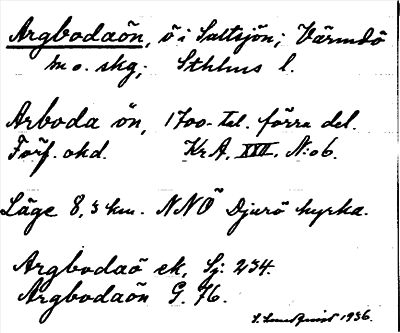 Argbodaön, ö i Saltsjön; Värmdö
m o. skg; Sthlms l.
Arboda ön, 1700-tal. förra del.
Förf. okd. KrA, XVII, N:o 6.
Läge 8,5 km. NNÖ Djurö kyrka.
Argbodaö ek, Sj. 234.
Argbodaön G. 76.
S. Lundqvist 1936.